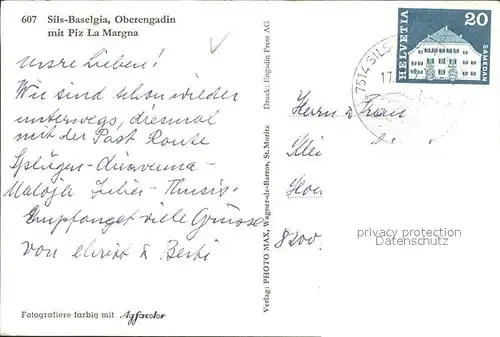 607 Sils-Baselgia, Oberengadin
mit Piz La Margna
unsre Lieben!
Wir sind schon wieder
unterwegs, diesmal
mit der Post Route
Splügen-Chiavenna-
Maloja Julier-Thusis.
Empfanget viele Grüsse
von & Berti
Fotografiere farbig mit Agfacolor
Verlag: PHOTO MAX, Wagner-de-Barros, St. Moritz Druck: Engadin Press AG
HELVETIA
20
SAMEDAN
7514 SILS
17.
Herrn & Frau
8200
privacy protection
Datenschutz